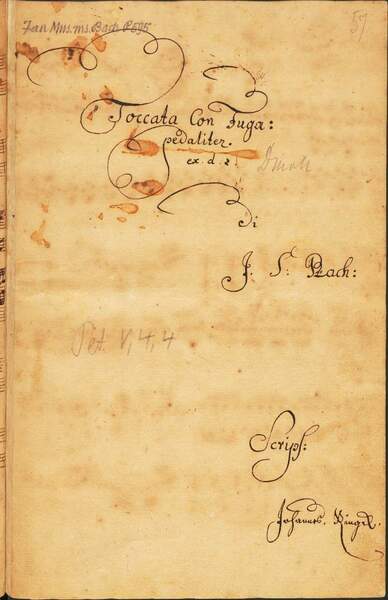 Fau Mus. ms. Bach P 595
57
Toccata Con Fuga:
pedaliter.
ex. d. #.
Dmoll
di
J. S. Bach:
Pet. V, 4, 4
Scrips:
Johannes. Ringk.